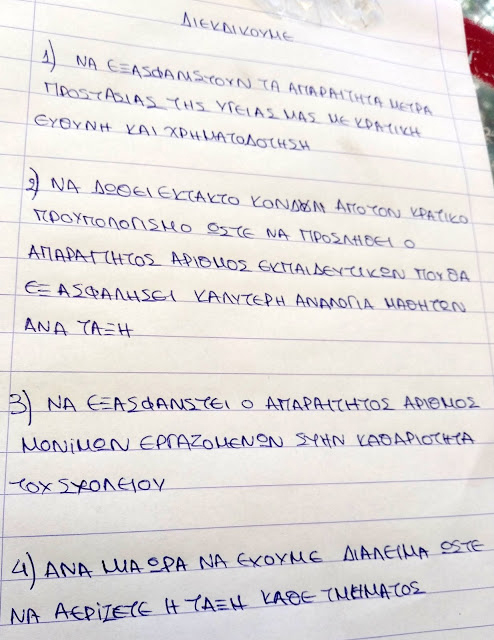 ΔΙΕΚΔΙΚΟΥΜΕ
1) ΝΑ ΕΞΑΣΦΑΛΙΣΤΟΥΝ ΤΑ ΑΠΑΡΑΙΤΗΤΑ ΜΕΤΡΑ
ΠΡΟΣΤΑΣΙΑΣ ΤΗΣ ΥΓΕΙΑΣ ΜΑΣ ΜΕ ΚΡΑΤΙΚΗ
ΕΥΘΥΝΗ ΚΑΙ ΧΡΗΜΑΤΟΔΟΤΗΣΗ
2) ΝΑ ΔΩΘΕΙ ΕΚΤΑΚΤΟ ΚΟΝΔΥΛΙ ΑΠΟ ΤΟΝ ΚΡΑΤΙΚΟ
ΠΡΟΥΠΟΛΟΓΙΣΜΟ ΩΣΤΕ ΝΑ ΠΡΟΣΛΗΘΕΙ Ο
ΑΠΑΡΑΙΤΗΤΟΣ ΑΡΙΘΜΟΣ ΕΚΠΑΙΔΕΥΤΙΚΩΝ ΠΟΥ ΘΑ
ΕΞΑΣΦΑΛΗΣΕΙ ΚΑΛΥΤΕΡΗ ΑΝΑΛΟΓΙΑ ΜΑΘΗΤΩΝ
ΑΝΑ ΤΑΞΗ
3) ΝΑ ΕΞΑΣΦΑΛΙΣΤΕΙ Ο ΑΠΑΡΑΙΤΗΤΟΣ ΑΡΙΘΜΟΣ
ΜΟΝΙΜΩΝ ΕΡΓΑΖΟΜΕΝΩΝ ΣΤΗΝ ΚΑΘΑΡΙΟΤΗΤΑ
ΤΟΥ ΣΧΟΛΕΙΟΥ
4) ΑΝΑ ΜΙΑ ΩΡΑ ΝΑ ΕΧΟΥΜΕ ΔΙΑΛΕΙΜΑ ΩΣΤΕ
ΝΑ ΑΕΡΙΖΕΤΕ Η ΤΑΞΗ ΚΑΘΕ ΤΜΗΜΑΤΟΣ